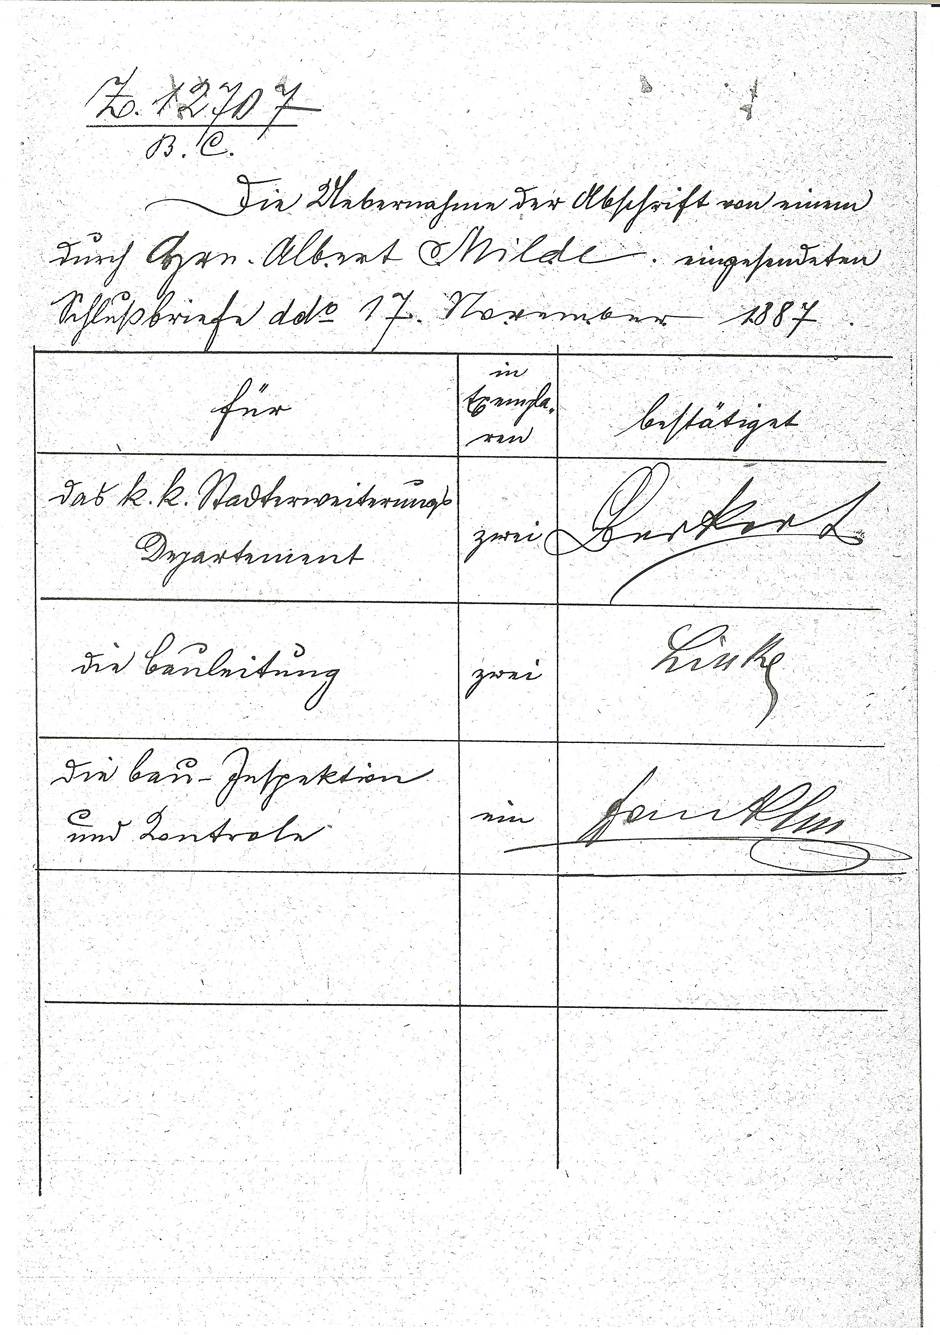 Z. 12707
B. C.
Die Uebernahme der Abschrift von einem
durch Hrn. Albert Milde. eingesendeten
Schlußbriefe ddo 17. November 1887.
für
in
Exempla-
ren
bestätiget
das k. k. Stadterweiterungs
Departement
zwei
die Bauleitung
zwei
Linke
die Bau-Inspektion
und Controle
ein